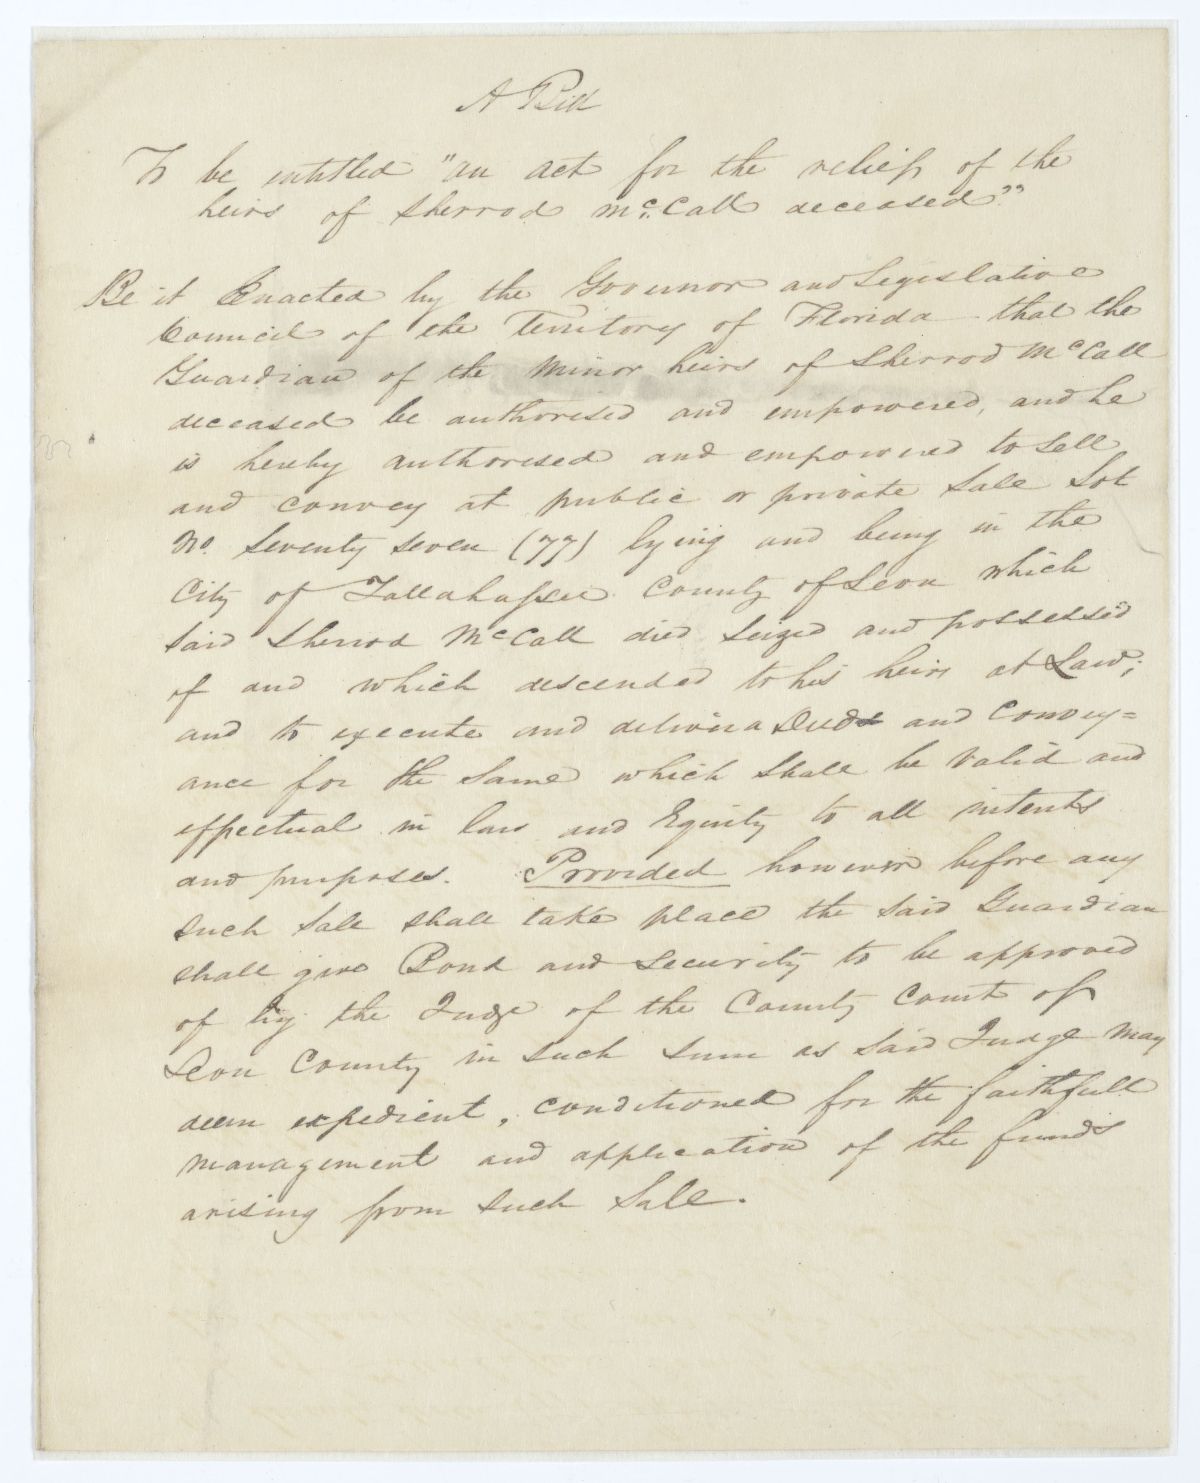 A Bill
To be entitled "an act for the relief of the
heirs of Sherrod McCall deceased"
Be it Enacted by the Governor and Legislative
Council of the Territory of Florida that the
Guardian of the Minor heirs of Sherrod McCall
deceased be authorised and empowered, and he
is hereby authorised and empowered to sell
and convey at public or private Sale Lot
No. Seventy seven (77) lying and being in the
City of Tallahassee County of Leon which
said Sherrod McCall died seized and possessed
of and which descended to his heirs at Law;
and to execute and deliver a Deed and Convey=
ance for the same which shall be valid and
effectual in law and Equity to all intents
and purposes. Provided however before any
such sale shall take place the said Guardian
shall give Bond and security to be approved
of by the Judge of the County Court of
Leon County in such sum as said Judge may
deem expedient, conditioned for the faithfull
management and application of the funds
arising from such Sale.